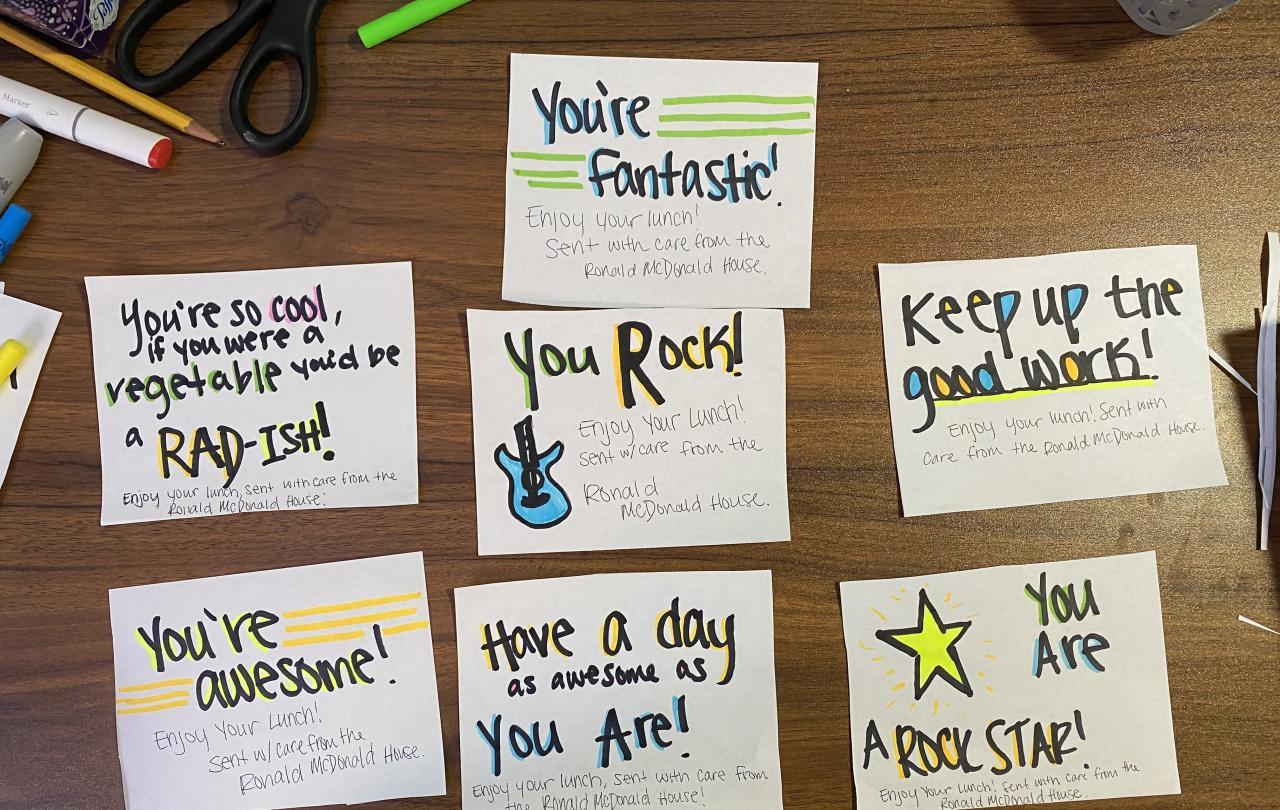 Marker
You're
Fantastic!
Enjoy your lunch!
Sent with care from the
Ronald McDonald House.
You're so cool,
if you were a
vegetable you'd be
a RAD-ISH!
Enjoy your lunch, sent with care from the
Ronald McDonald House!
You Rock!
Enjoy Your Lunch!
Sent w/ care from the
Ronald
McDonald House.
Keep up the
good work!
Enjoy your lunch! Sent with
care from the Ronald McDonald House.
You're
awesome!
Enjoy Your Lunch!
Sent w/ care from the
Ronald McDonald House.
Have a day
as awesome as
You Are!
Enjoy your lunch, sent with care from
the Ronald McDonald House!
You
Are
A ROCK STAR!
Enjoy Your lunch! Sent with care from the
Ronald McDonald House.